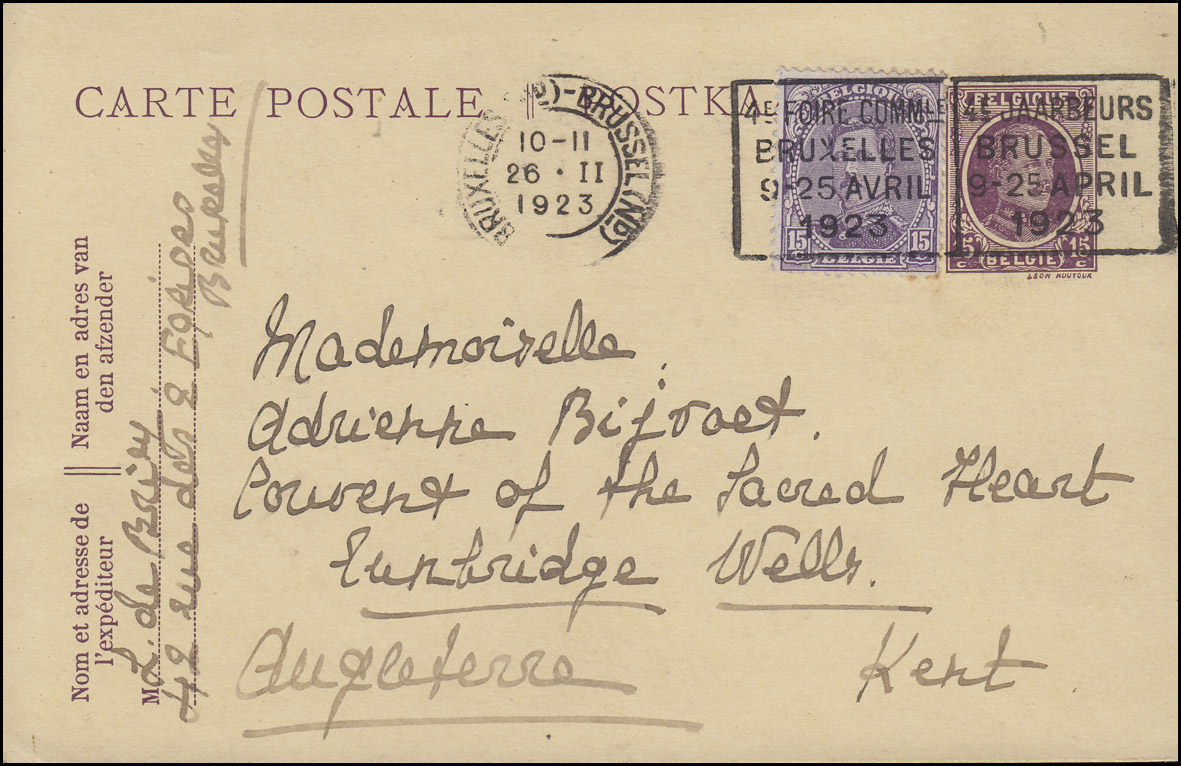 CARTE POSTALE
POSTKA
BRUXELLES
BRUSSEL (Nd)
10-11
26 · II
1923
4E FOIRE COMMLE
BRUXELLES
9-25 AVRIL
1923
4E JAARBEURS
BRUSSEL
9-25 APRIL
1923
BELGIQUE
15 15
BELGIË
BELGIQUE
15 c 15 c
BELGIË
Mademoiselle
Adrienne Bijvoet.
Convent of the Sacred Heart
Tunbridge Wells.
Angleterre Kent.
Naam en adres van
den afzender
Nom et adresse de
l'expéditeur
M L. de
42 rue des 2
Bruxelles